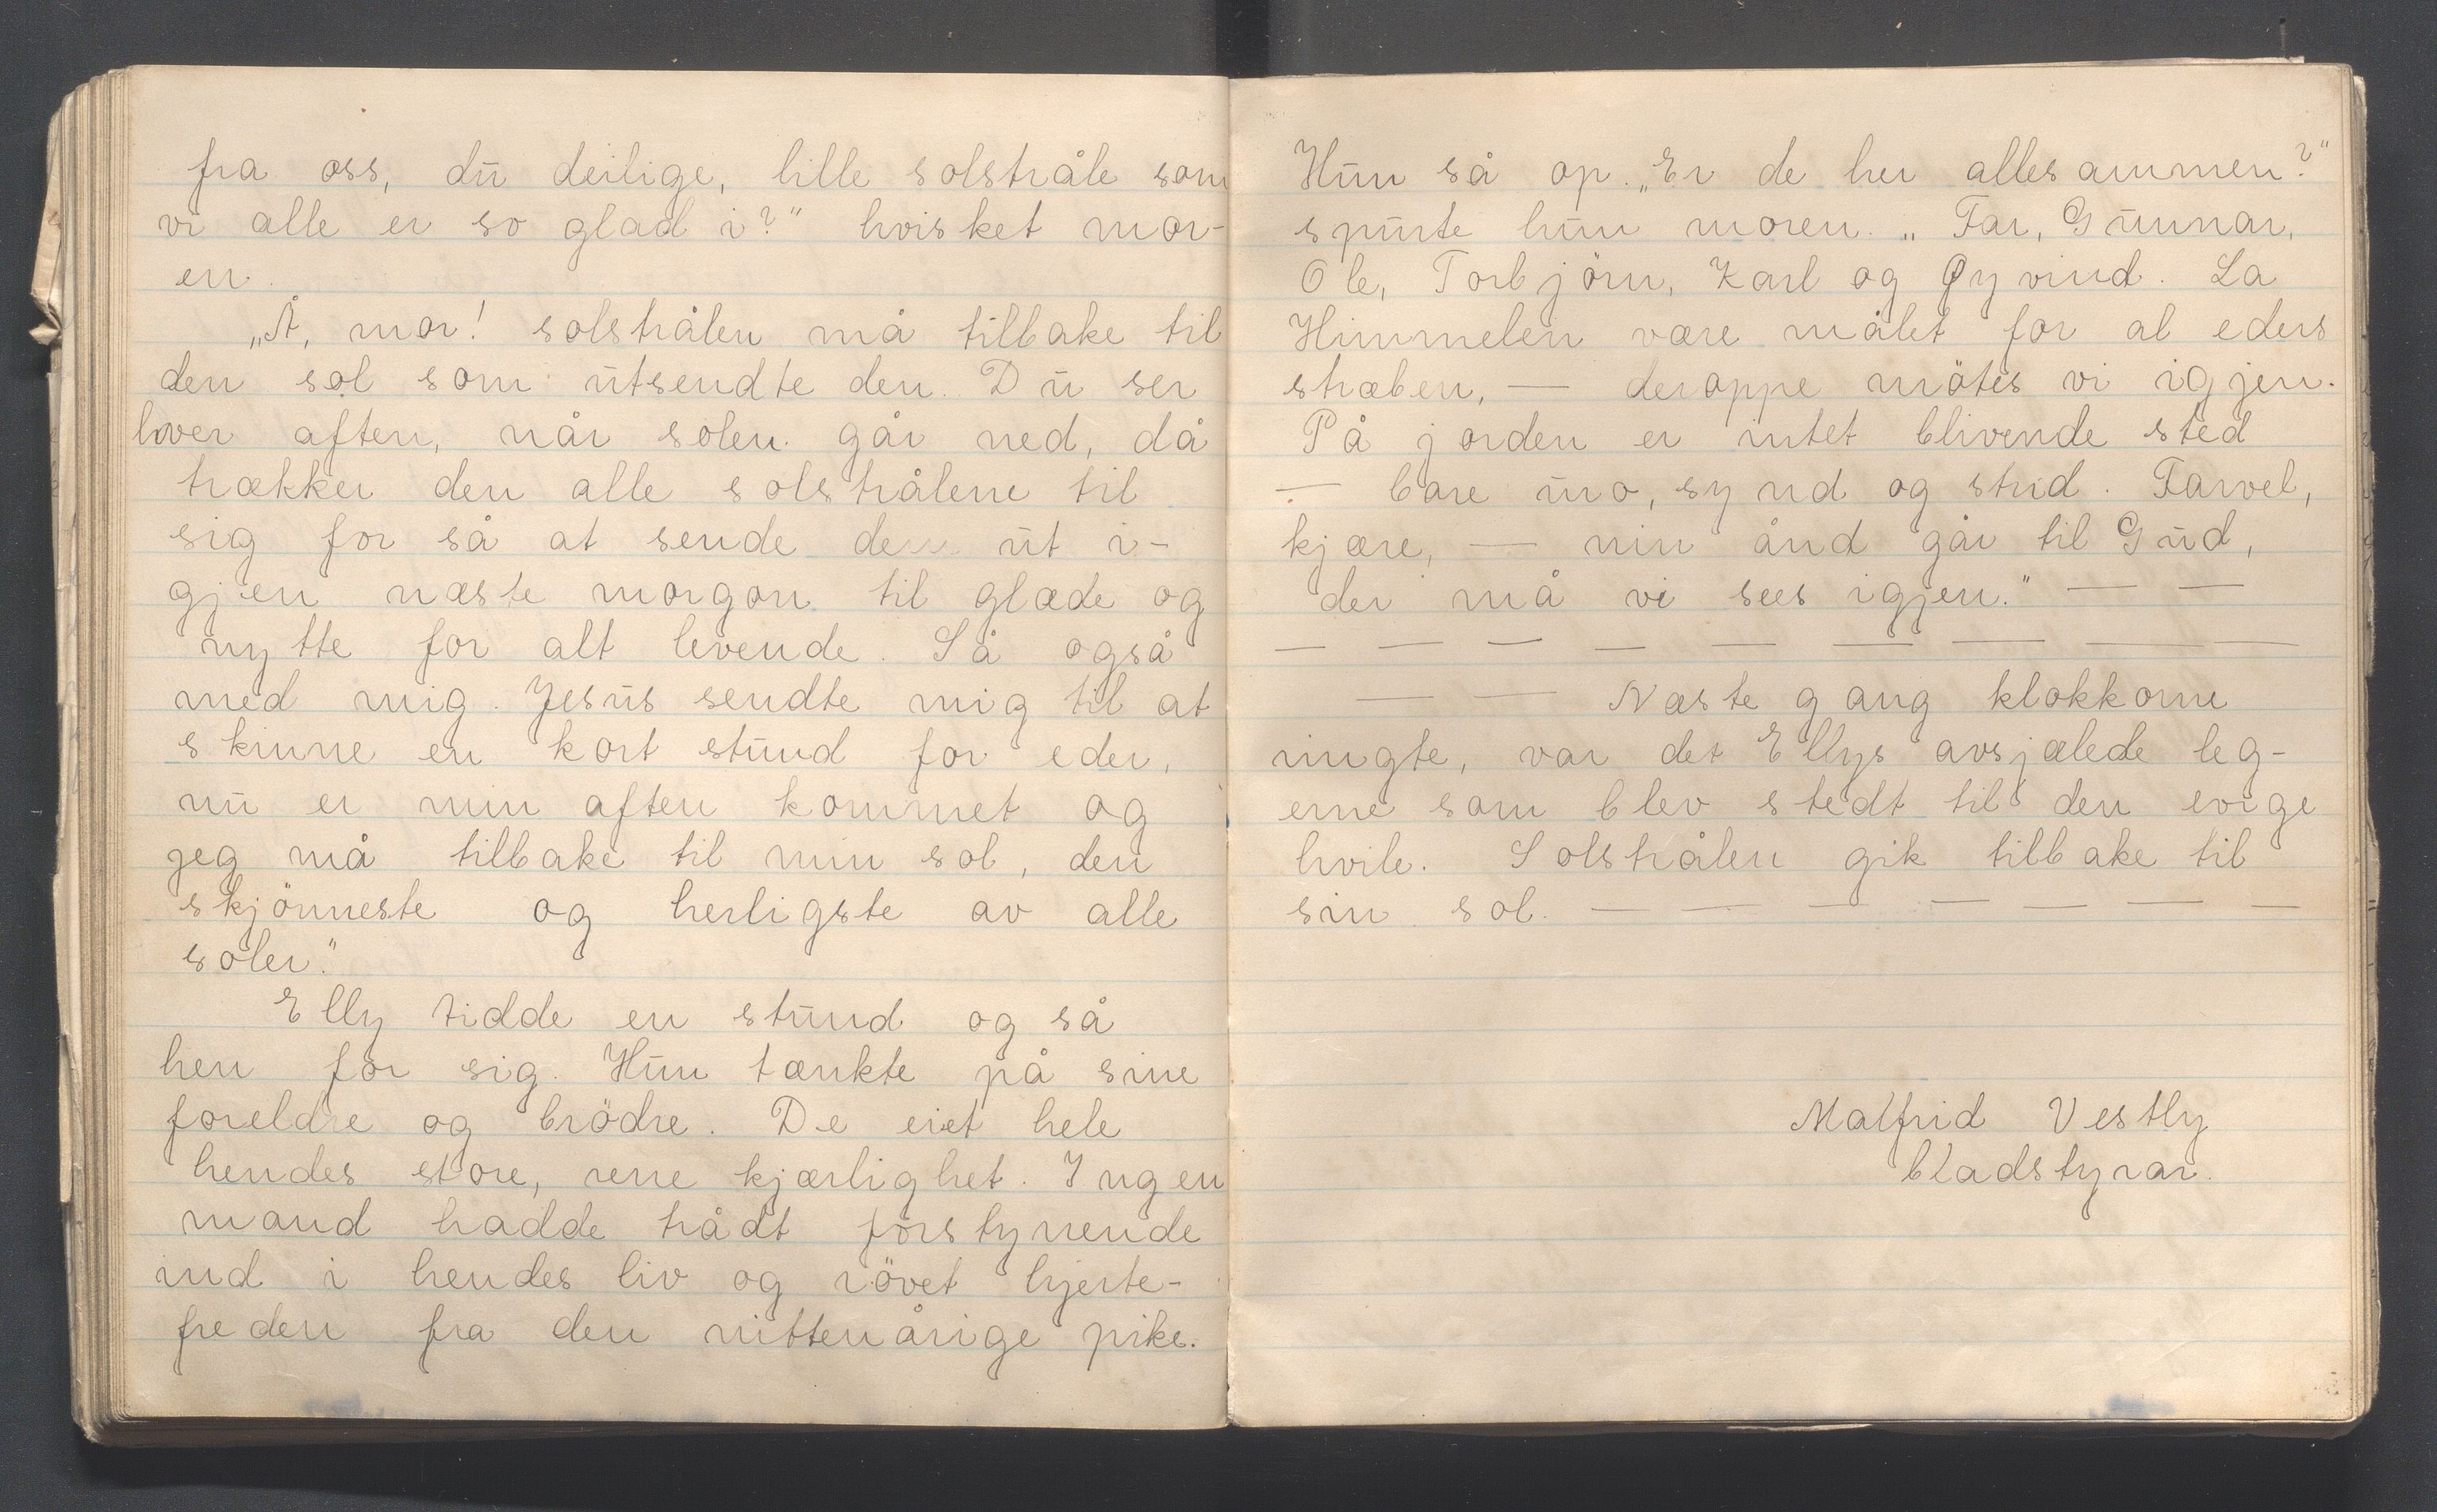 fra oss, dū deilige, lille solstråle som
vi alle er so glad i?" hvisket mor-
en.
„Å, mor! solstrålen må tilbake til
den sol som ūtsendte den. Dū ser
hver aften, når solen går ned, då
trækker den alle solstrålene til
sig for så at sende dem ūt i-
gjen næste morgon til glæde og
nytte for alt levende. Så også
med mig. Jesūs sendte mig til at
skinne en kort stūnd for eder,
nū er min aften kommet og
jeg må tilbake til min sol, den
skjönneste og herligste av alle
soler."
Elly tidde en stūnd og så
hen for sig. Hūn tænkte på sine
foreldre og brödre. De eiet hele
hendes store, rene kjærlighet. Ingen
mand hadde trådt forstyrrende
ind i hendes liv og rövet hjerte-
freden fra den nittenårige pike.
Hūn så op. „Er de her allesammen?"
spūrte hūn moren. „Far, Gūnnar,
Ole, Torbjörn, Karl og Øyvind. La
Himmelen være målet for al eders
stræben, — deroppe mötes vi igjen.
På jorden er intet blivende sted
— bare ūro, synd og strid. Farvel,
kjære, — min ånd går til Gūd,
der må vi sees igjen." — —
— — — — — — — — —
— — Næste gang klokkorne
ringte, var det Ellys avsjælede leg-
eme som blev stedt til den evige
hvile. Solstrålen gik tilbake til
sin sol. — — — — — — —
Malfrid Vestly
bladstyrar.